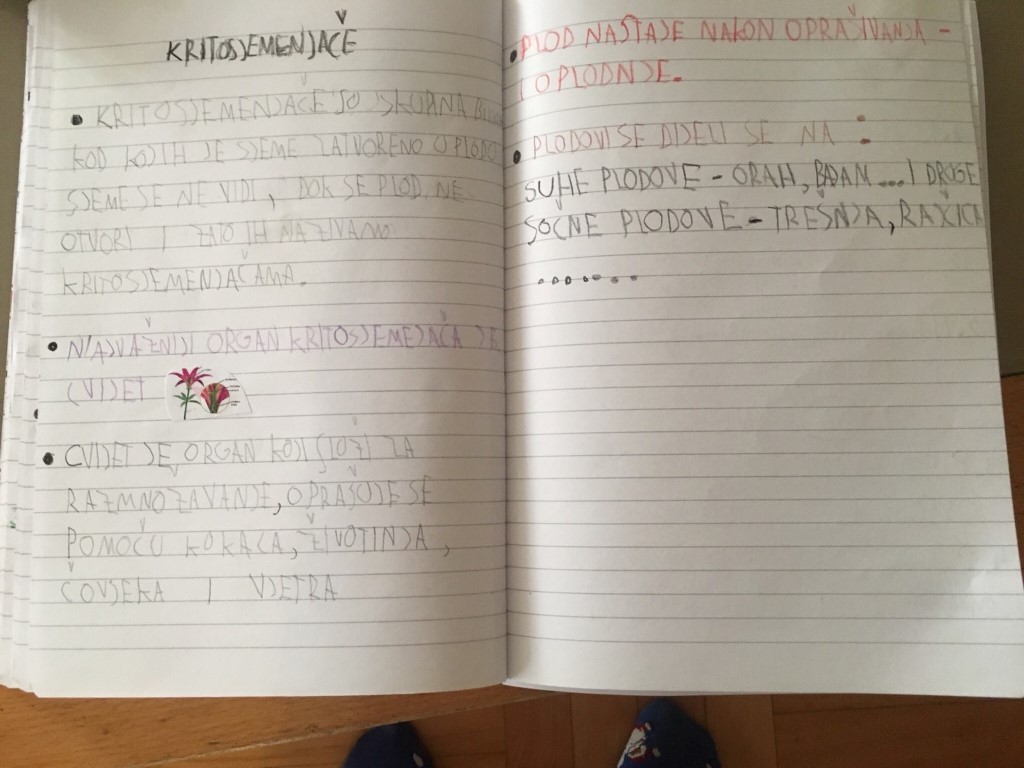 KRITOSJEMENJAČE
KRITOSJEMENJAČE JO SKUPINA
KOD KOJIH JE SJEME ZATVORENO O PLODO
SJEME SE NE VIDI, DOK SE PLOD NE
OTVORI I ZATO IH NAZIVAMO
KRITOSJEMENJAČAMA.
NAJVAŽNIJI ORGAN KRITOSJEMEJAČA JE
CVIJET
CVIJET JE ORGAN KOJI SLOŽI ZA
RAZMNOŽAVANJE, OPRAŠOJE SE
POMOČU KOKACA, ŽIVOTINJA,
ČOVJEKA I VJETRA
PLOD NASTAJE NAKON OPRAŠIVANJA -
I OPLODNJE.
PLODOVI SE DIJELI SE NA :
SUHE PLODOVE - ORAH, BADAM ... I DROGE
SOČNE PLODOVE - TREŠNJA,
........